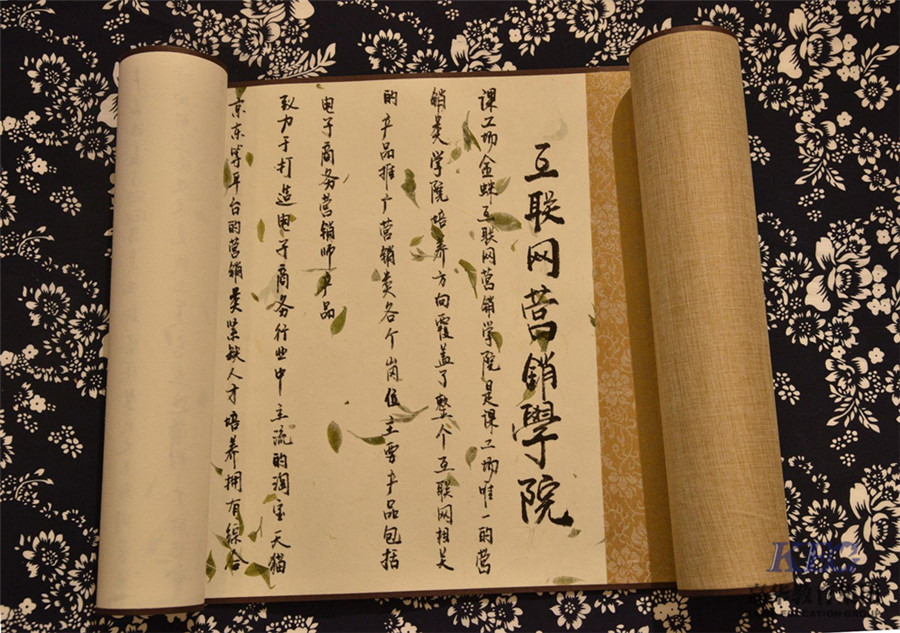 互联网营销學院
课工场金蝉互联网营销学院是课工场唯一的营
销类学院培养方向覆盖了整个互联网相关
的产品推广营销类各个岗位主要产品包括
电子商务营销师单品
致力于打造电子商务行业中主流的淘宝天猫
京东等平台的营销类紧缺人才培养拥有综合
KEC
EDUCATION GROUP